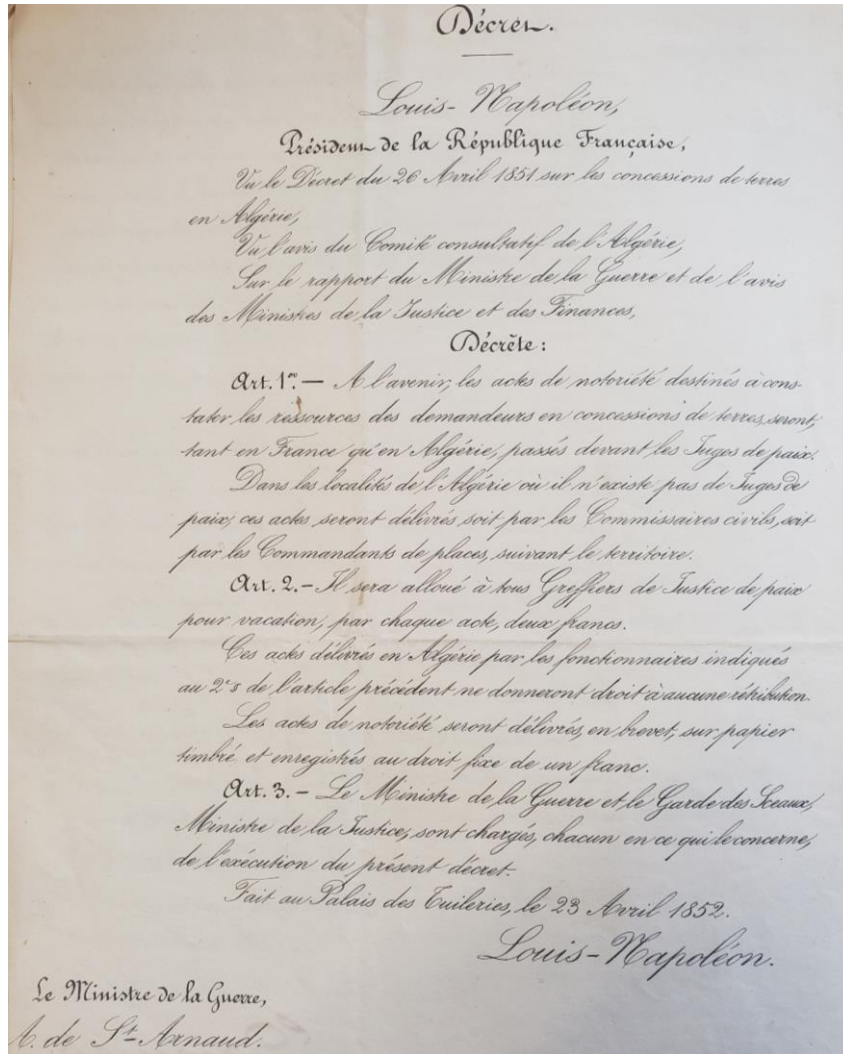 Décret.
Louis-Napoléon,
Président de la République Française,
Vu le Décret du 26 Avril 1851 sur les concessions de terres
en Algérie,
Vu l'avis du Comité consultatif de l'Algérie,
Sur le rapport du Ministre de la Guerre et de l'avis
des Ministres de la Justice et des Finances,
Décrète:
Art. 1er. — A l'avenir, les actes de notoriété destinés à cons-
tater les ressources des demandeurs en concessions de terres, seront,
tant en France qu'en Algérie, passés devant les Juges de paix.
Dans les localités de l'Algérie où il n'existe pas de Juges de
paix, ces actes seront délivrés, soit par les Commissaires civils, soit
par les Commandants de places, suivant le territoire.
Art. 2. - Il sera alloué à tous Greffiers de Justice de paix
pour vacation, par chaque acte, deux francs.
Ces actes délivrés en Algérie par les fonctionnaires indiqués
au 2e § de l'article précédent ne donneront droit à aucune rétribution.
Les actes de notoriété seront délivrés, en brevet, sur papier
timbré et enregistrés au droit fixe de un franc.
Art. 3. - Le Ministre de la Guerre et le Garde des Sceaux,
Ministre de la Justice, sont chargés, chacun en ce qui le concerne,
de l'exécution du présent décret.
Fait au Palais des Tuileries, le 23 Avril 1852.
Louis-Napoléon.
Le Ministre de la Guerre,
A. de St-Arnaud.